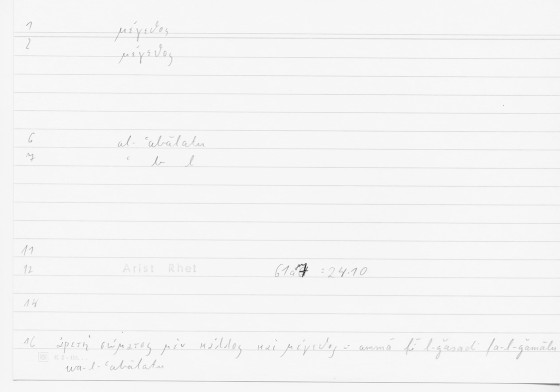 1 μέγεθος
2 μέγεθος
6 al-ʿabālatu
7 ʿ b l
11
13 Arist Rhet 61a7 = 24.10
14
16 ἀρετὴ σώματος μὲν κάλλος καὶ μέγεθος = ammā fī l-ǧasadi fa-l-ǧamālu
wa-l-ʿabālatu